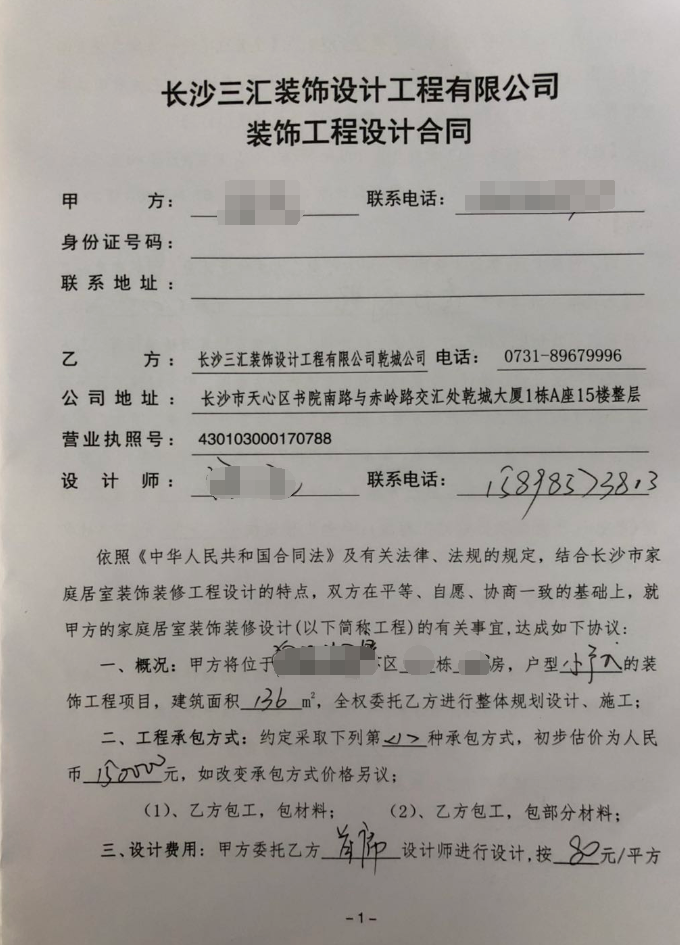 长沙三汇装饰设计工程有限公司
装饰工程设计合同
甲 方： 联系电话：
身份证号码：
联系地址：
乙 方：长沙三汇装饰设计工程有限公司乾城公司 电话：0731-89679996
公司地址：长沙市天心区书院南路与赤岭路交汇处乾城大厦1栋A座15楼整层
营业执照号：430103000170788
设 计 师： 联系电话：
依照《中华人民共和国合同法》及有关法律、法规的规定，结合长沙市家
庭居室装饰装修工程设计的特点，双方在平等、自愿、协商一致的基础上，就
甲方的家庭居室装饰装修设计(以下简称工程)的有关事宜,达成如下协议：
一、概况：甲方将位于 区 栋 房，户型 的装
饰工程项目，建筑面积136m²，全权委托乙方进行整体规划设计、施工；
二、工程承包方式：约定采取下列第<1>种承包方式，初步估价为人民
币150000元，如改变承包方式价格另议；
(1)、乙方包工，包材料； (2)、乙方包工，包部分材料；
三、设计费用：甲方委托乙方首席设计师进行设计,按80元/平方
-1-